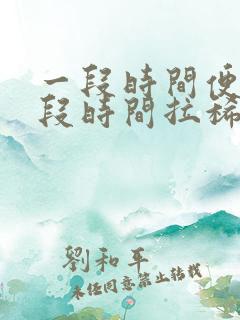 一段時間便
段時間拉稀
劉和平
未經同意禁止轉載